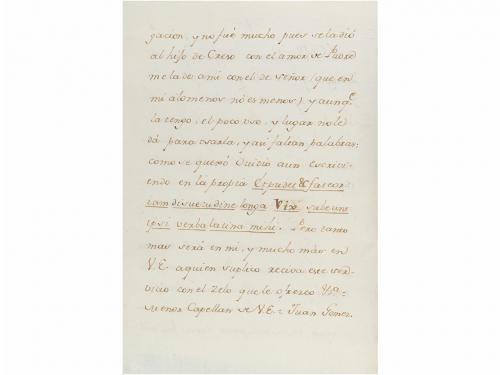 gacion, y no fué mucho pues se la dió
al hijo de Creso con el amor de Padre
me la de a mi con el de señor (que en
mi álomenos nó es menos) y aunq.e
la tengo, el poco uso, y lugar no le
dá para usarla, y asi faltan palabras:
como se quexó Ouidio aun escrivi-
endo en la propia Et pudet & fateor
iam disuetudine longa Vix subeunt
ipsi verba latina mihi. Pero tanto
mas será en mi, y mucho más en
V.E. aquien suplico reciva este ser-
vicio con el zelo que le ofrezco
menor Capellan de V.E.= Juan Gomez.